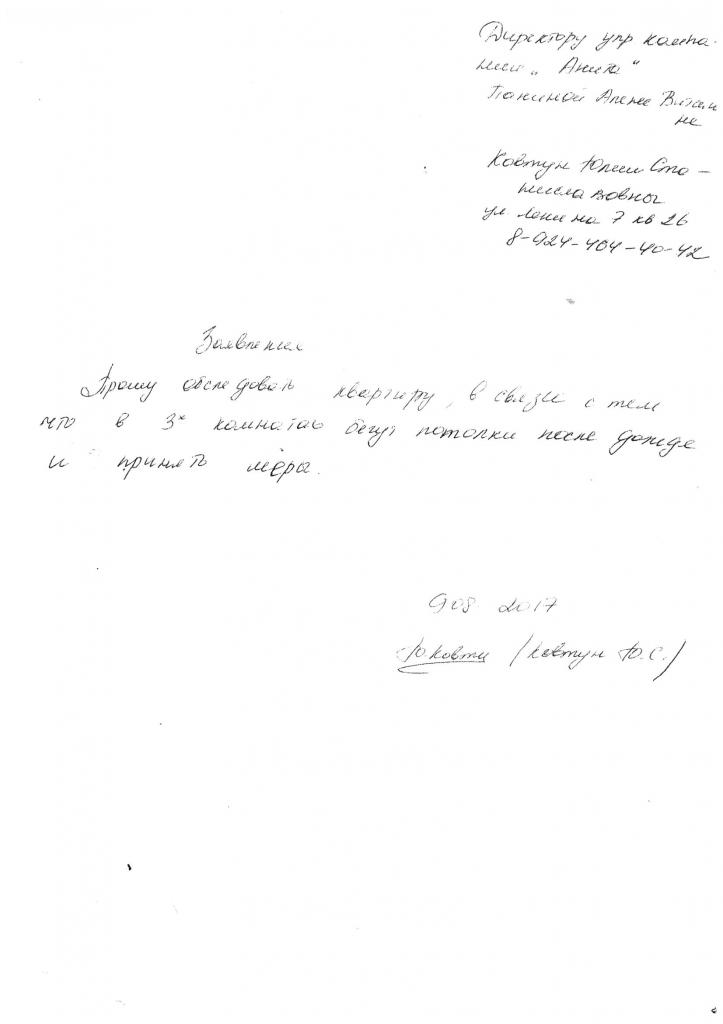 Директору упр компа-
нии „Анита“
Паниной Алене Витали
не
Ковтун Юлии Ста-
ниславовны
ул Ленина 7 кв 26
8-924-404-40-42
Заявление
Прошу обследовать квартиру, в связи с тем
что в 3х комнатах бегут потолки после дождя
и принять меры.
9 08 2017
Ю.Ковтун /Ковтун Ю.С./